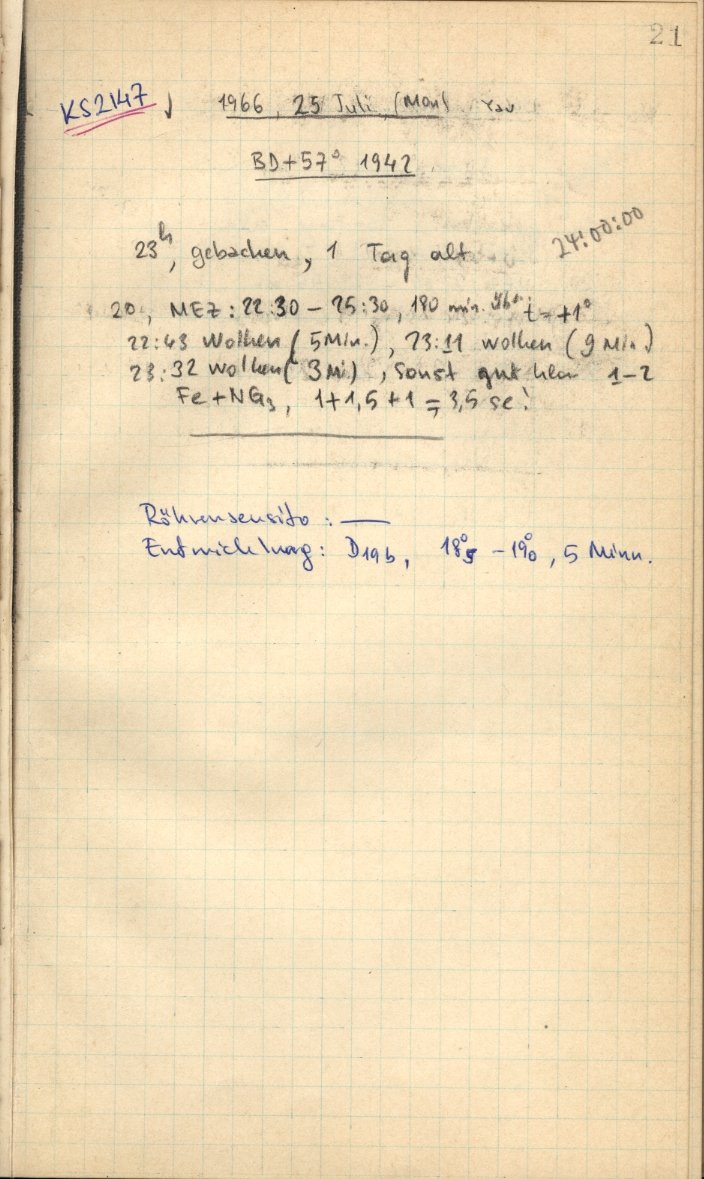 21
KS2147 1966, 25 Juli (Mon)
BD+57° 1942
23h, gebacken, 1 Tag alt
24:00:00
20, MEZ: 22:30 – 25:30, 180 min. t = +1°
22:43 Wolken (5 Min.), 23:11 wolken (9 Min.)
23:32 wolken (3 Mi), Sonst gut klar 1–2
Fe + NG3, 1+1,5+1 = 3,5 se!
Röhrensensito: —
Entwicklung: D19b, 18°5 – 19°0, 5 Minn.